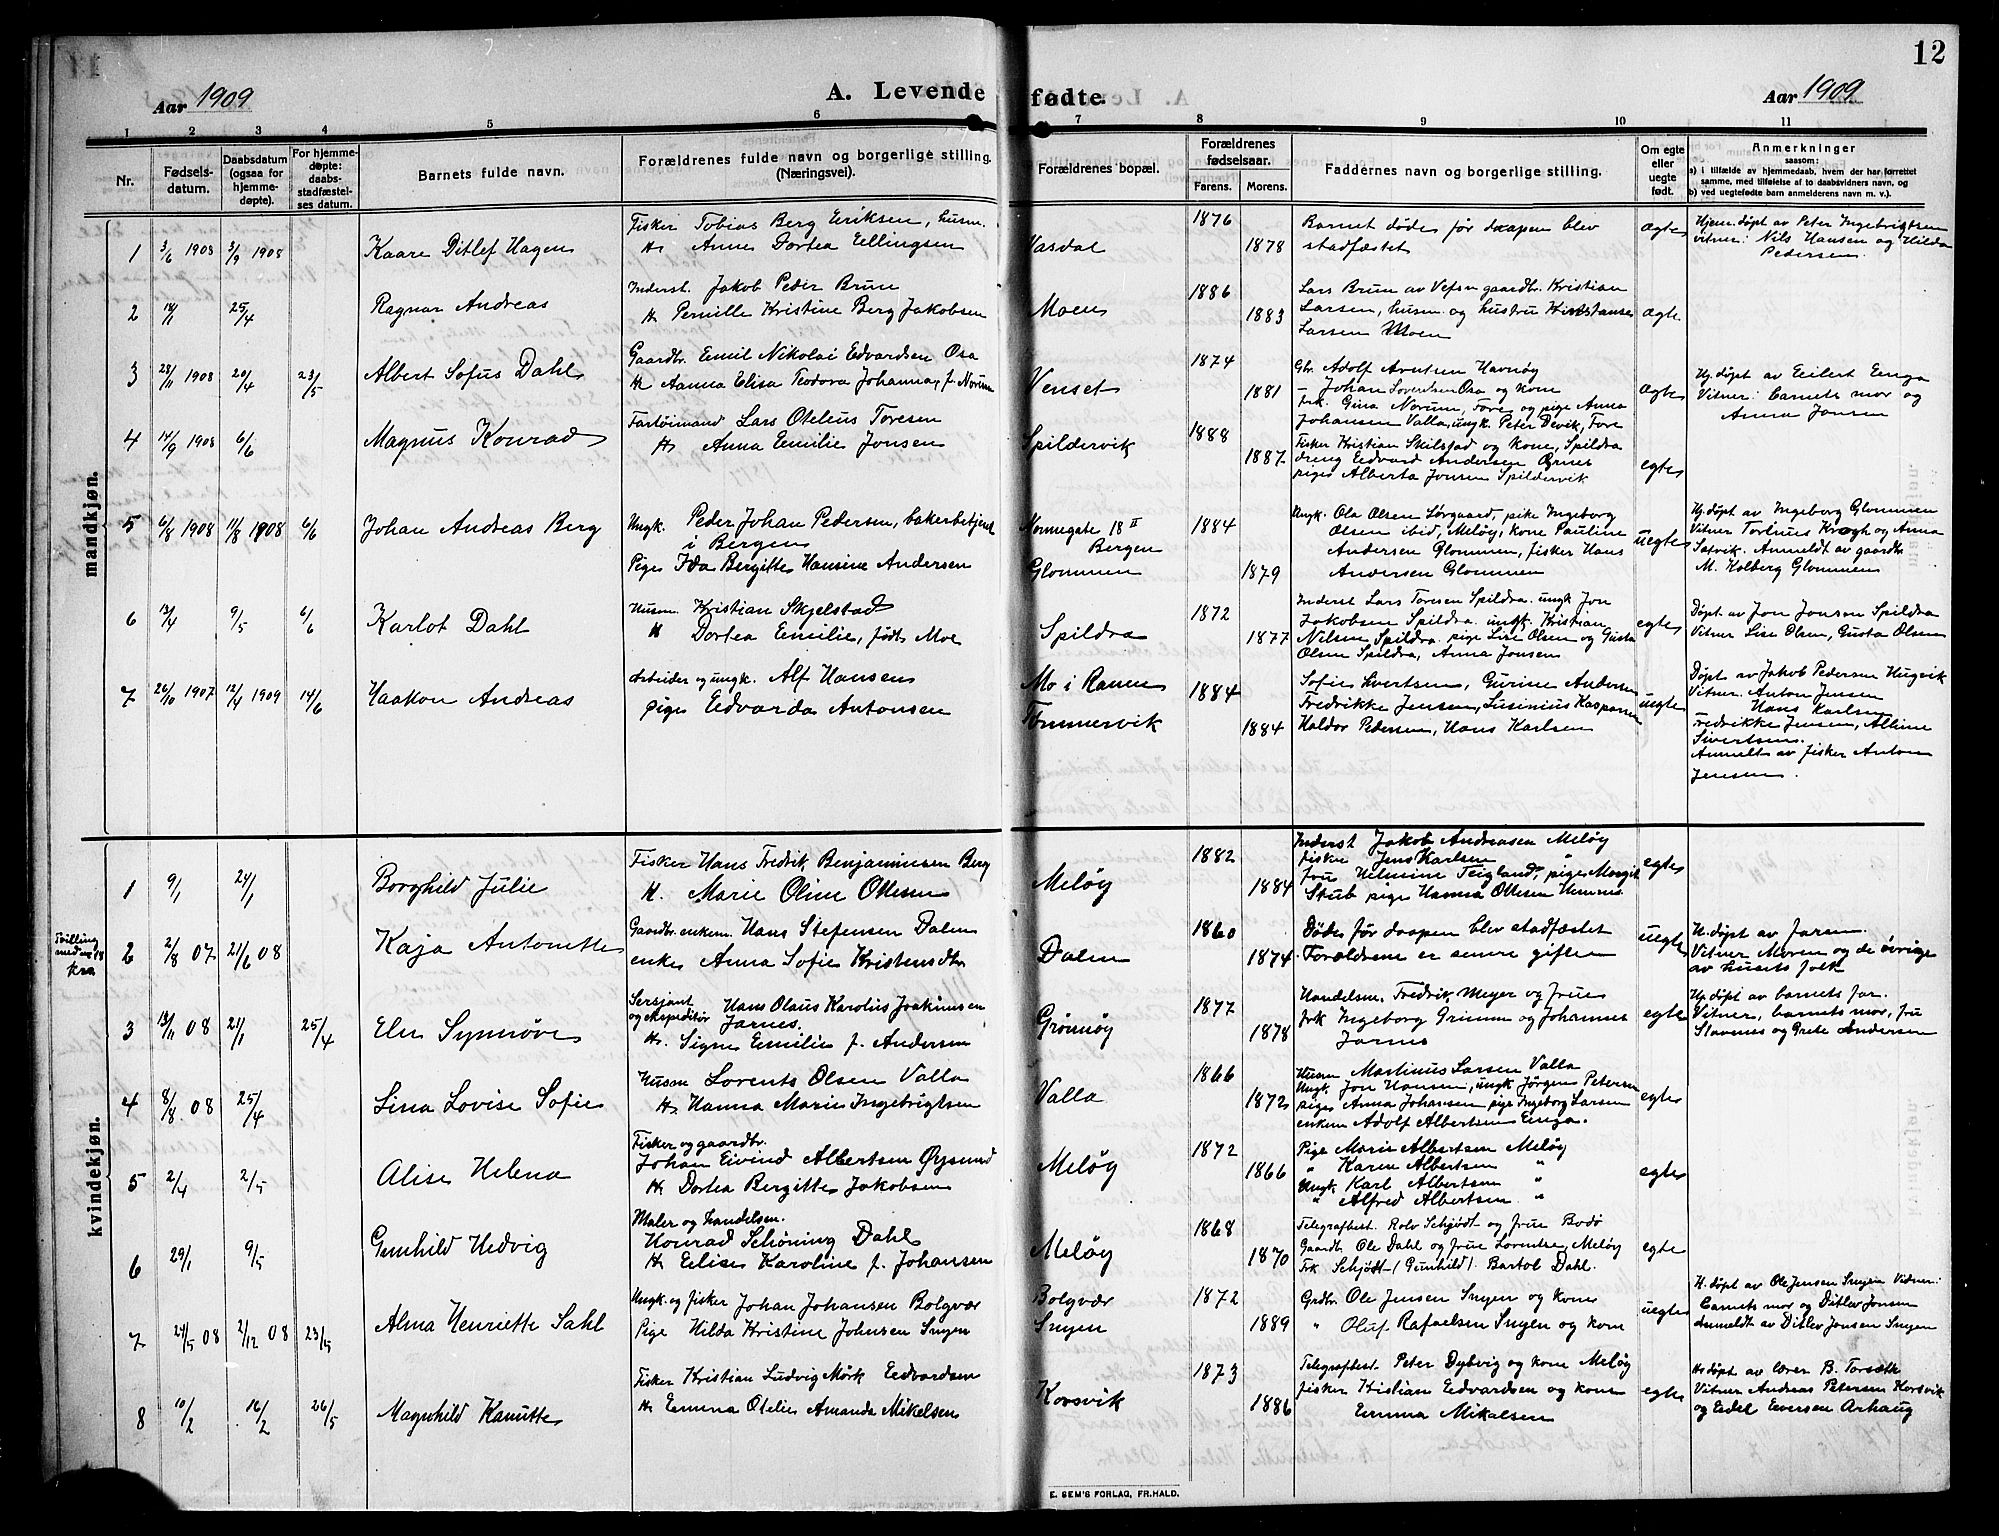 12
Aar 1909
A. Levende fødte.
Aar 1909
1 2 3 4 5 6 7 8 9 10 11
Nr.
Fødsels-
datum.
Daabsdatum
(ogsaa for
hjemme-
døpte).
For hjemme-
døpte:
daabs-
stadfæstel-
ses datum.
Barnets fulde navn.
Forældrenes fulde navn og borgerlige stilling.
(Næringsvei).
Forældrenes bopæl.
Forældrenes
fødselsaar.
Farens. Morens.
Faddernes navn og borgerlige stilling.
Om egte
eller
uegte
født.
Anmerkninger
saasom:
a) i tilfælde av hjemmedaab, hvem der har forrettet
samme, med tilføielse af to daabsvidners navn, og
b) ved uegtefødte barn anmelderens navn m. v.).
mandkjøn.
1 3/6 1908 3/9 1908
Kaare Ditlef Hagen
Fisker Tobias Berg Eriksen, husm.
H. Anne Dortea Ellingsen
Vasdal
1876
1878
Barnet døde før daapen blev
stadfæstet
ægte
Hjem. døpt av Peter Ingebrigtsen
vitner: Nils Hansen og Hilda
Pedersen.
2 14/1 25/4
Ragnar Andreas
Inderst. Jakob Peder Brun
H. Pernille Kristine Berg Jakobsen
Moen
1886
1883
Lars Brun av Vefsn gaardbr. Kristian
Larsen, husm. og hustru Konstanse
Larsen Moen
ægte
3 28/11 1908 20/4 23/5
Albert Sofus Dahl
Gaardbr. Emil Nikolai Edvardsen Osa
H. Aanna Elisa Teodora Johanna, f. Norum
Venset
1874
1881
Gbr. Adolf Arntsen Havnøy
— Johan Lorentsen Osa og kone
frk. Gina Norum, Fore og pige Anna
Johansen Valla, ungk. Peter Devik, Fore
ægte
Hj. døpt av Eilert Enga
Vitner: barnets mor og
Anna Jonsen
4 14/9 1908 6/6
Magnus Konrad
Fartøimand Lars Oteleus Toresen
H. Anna Emilie Jonsen
Spildervik
1888
1887
Fisker Kristian Skilstad og kone, Spildra
dreng Edvard Andersen Ørnes
pige Alberta Jonsen Spildervik
egte
5 6/8 1908 11/8 1908 6/6
Johan Andreas Berg
Ungk. Peder Johan Pedersen, bakerbetjent
i Bergen
Pige Ida Bergitte Hansine Andersen
Nonnegate 18 II
Bergen
Glommen
1884
1879
Ungk. Ole Olsen Sørgaard, pike Ingeborg
Olsen ibid, Meløy, kone Pauline
Andersen Glommen, fisker Hans
Andersen Glommen
uegte
Hj. døpt av Ingeborg Glommen
Vitner Torleus Krogh og Anna
Sætvik. Anmeldt av gaardbr.
M. Kolberg Glommen
6 13/4 9/5 6/6
Karlot Dahl
Husm. Kristian Skjelstad
H. Dortea Emilie, født Moe
Spildra
1872
1877
Inderst Lars Toresen Spildra. ungk. Jon
Jakobsen Spildra. ungk. Kristian
Nilsen Spildra. pige Lise Olsen og Gusta
Olsen Spildra, Anna Jonsen
egte
Døpt av Jon Jonsen Spildra
Vitner Lise Olsen, Gusta Olsen
7 26/10 1907 12/4 1909 14/6
Haakon Andreas
Arbeider og ungk. Alf Hansen
pige Edvarda Antonsen
Mo i Ranen
Tømmervik
1884
1884
Sofie Svertsen, Gurine Andersen
Fredrikke Jensen, Lusinius Kaspersen
Haldor Pedersen, Hans Karlsen
uegte
Døpt av Jakob Pedersen Hugvik
Vitner. Anton Jensen
Hans Karlsen
Fredrikke Jensen, Albine
Sivertsen.
Anmeldt av fisker Anton
Jensen.
kvindekjøn.
1 9/1 24/1
Borghild Julie
Fisker Hans Fredrik Benjaminsen Berg
H. Marie Oline Ottesen
Meløy
1882
1884
Inderst Jakob Andreasen Meløy
fisker Jens Karlsen "
fru Helmine Teigland, pige Margit
Stub pige Hanna Ottesen Hemnes
egte
Tvilling
2 2/8 07 21/6 08
Kaja Antonette
Gaardbr. enkem. Hans Stefensen Dalen
enke Anna Sofie Kristensdtr.
Dalen
1860
1874
Døde før daapen blev stadfæstet
Forældrene er senere gifte
uegte
H. døpt av faren.
Vitner Moren og de øvrige
av husets folk
3 13/11 08 21/1 25/4
Else Synnøve
Sersjant og ekspeditør Hans Olaus Karolius Joakimsen
Jarnes.
H. Signe Emilie f. Andersen
Grønnøy
1877
1878
Handelsm. Fredrik Meyer og frue
frk Ingeborg Grimm og Johannes
Jarnes
egte
Hj. døpt av barnets far.
Vitner, barnets mor, fru
Slavenes og Grete Andersen
4 8/8 08 25/4
Lina Lovise Sofie
Husm Lorents Olsen Valla
H. Hanna Marie Ingebrigtsen
Valla
1866
1872
Husm Martinus Larsen Valla
Ungk. Jon Hansen, ungk Jørgen Petersen
pige Anna Johansen pige Ingeborg Larsen
enkem Adolf Albertsen Enga.
egte
5 2/4 2/5
Alise Helena
Fisker og gaardbr.
Johan Eivind Albertsen Øysund
H. Dortea Bergitte Jakobsen
Meløy
1872
1866
Pige Marie Albertsen Meløy
" Karen Albertsen "
Ungk Karl Albertsen "
" Alfred Albertsen "
egte
6 29/1 9/5
Gunhild Hedvig
Maler og handelsm.
Konrad Schøning Dahl
H. Elise Karoline f. Johansen
Meløy
1868
1870
Telegrafbest. Rolv Schjødt og frue Bodø
Gaardbr Ole Dahl og frue Lorentse, Meløy
Frk Schjødt (Gunhild). Bartol Dahl.
egte
7 24/5 08 2/12 08 23/5
Alma Henriette Sahl
Ungk. og fisker Johan Johansen Bolgvær
Pige Hilda Kristine Johnsen Snyen
Bolgvær
Snyen
1872
1889
Grdbr. Ole Jensen Snyen og kone
" Oluf Rafaelsen Snyen og kone
uegte
H. døpt av Ole Jensen Snyen Vidner:
Barnets mor og Ditlev Jonsen
Anmeldt av Ditlev Jonsen Snyen
8 10/2 16/2 26/5
Magnhild Kanutte
Fisker Kristian Ludvig Mørk Edvardsen
H. Emma Otelie Amanda Mikelsen
Korsvik
1873
1886
Telegrafbest. Peter Dybvig og kone Meløy
fisker Kristian Edvardsen og kone
Emma Mikalsen
egte
H. døpt av lærer B. Torsæth
Vitner Andreas Petersen Korsvik
og Edel Eversen Arhaug
E. SEM'S FORLAG, FR.HALD.